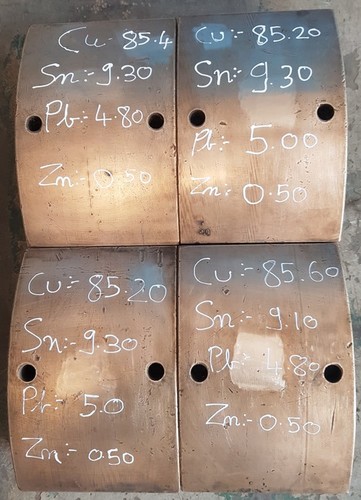 Cu:- 85.4
Sn:- 9.30
Pb:- 4.80
Zn:- 0.50
Cu:- 85.20
Sn:- 9.30
Pb:- 5.00
Zn:- 0.50
Cu:- 85.20
Sn:- 9.30
Pb:- 5.0
Zn:- 0.50
Cu:- 85.60
Sn:- 9.10
Pb:- 4.80
Zn:- 0.50